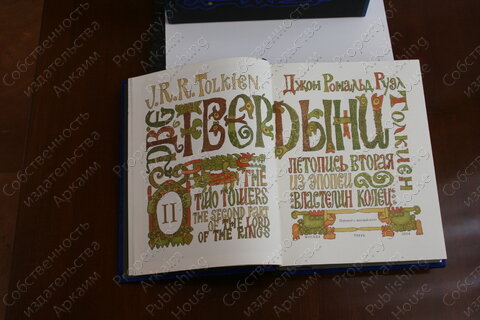 J.R.R. Tolkien
Джон Рональд Руэл
Толкиен
Две Твердыни
The
Two Towers
The Second Part
of the Lord
of the Rings
II
Летопись вторая
из эпопеи
Властелин Колец
Собственность
издательства
Аркаим
Property of
Publishing
House